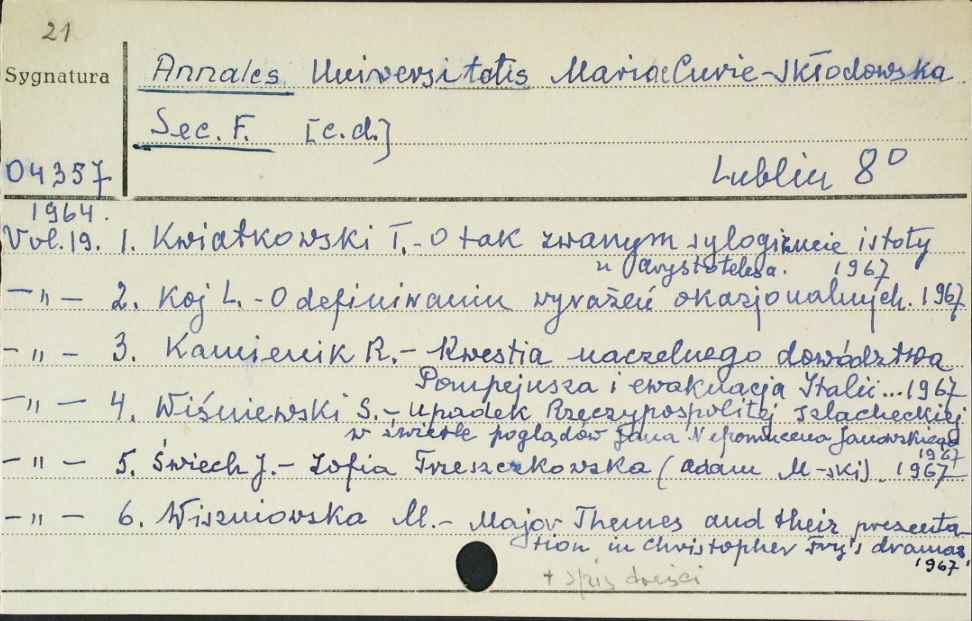 21
Sygnatura Annales Universitatis Mariae Curie-Skłodowska
Sec. F. [c.d.]
04357 Lublin 8°
1964.
Vol. 19. 1. Kwiatkowski T. - O tak zwanym sylogizmie istoty
u Arystotelesa. 1967
- " - 2. Koj L. - O definiowaniu wyrażeń okazjonalnych. 1967
- " - 3. Kamienik R. - Kwestia naczelnego dowództwa
Pompejusza i ewakuacja Italii... 1967
- " - 4. Wiśniewski S. - Upadek Rzeczypospolitej szlacheckiej
w świetle poglądów Jana Nepomucena Janowskiego
1967
- " - 5. Świech J. - Zofia Trzeszczkowska (Adam M-ski). 1967
- " - 6. Wiszniowska M. - Major Themes and their presenta-
tion in Christopher Fry's dramas
1967
+ spis treści